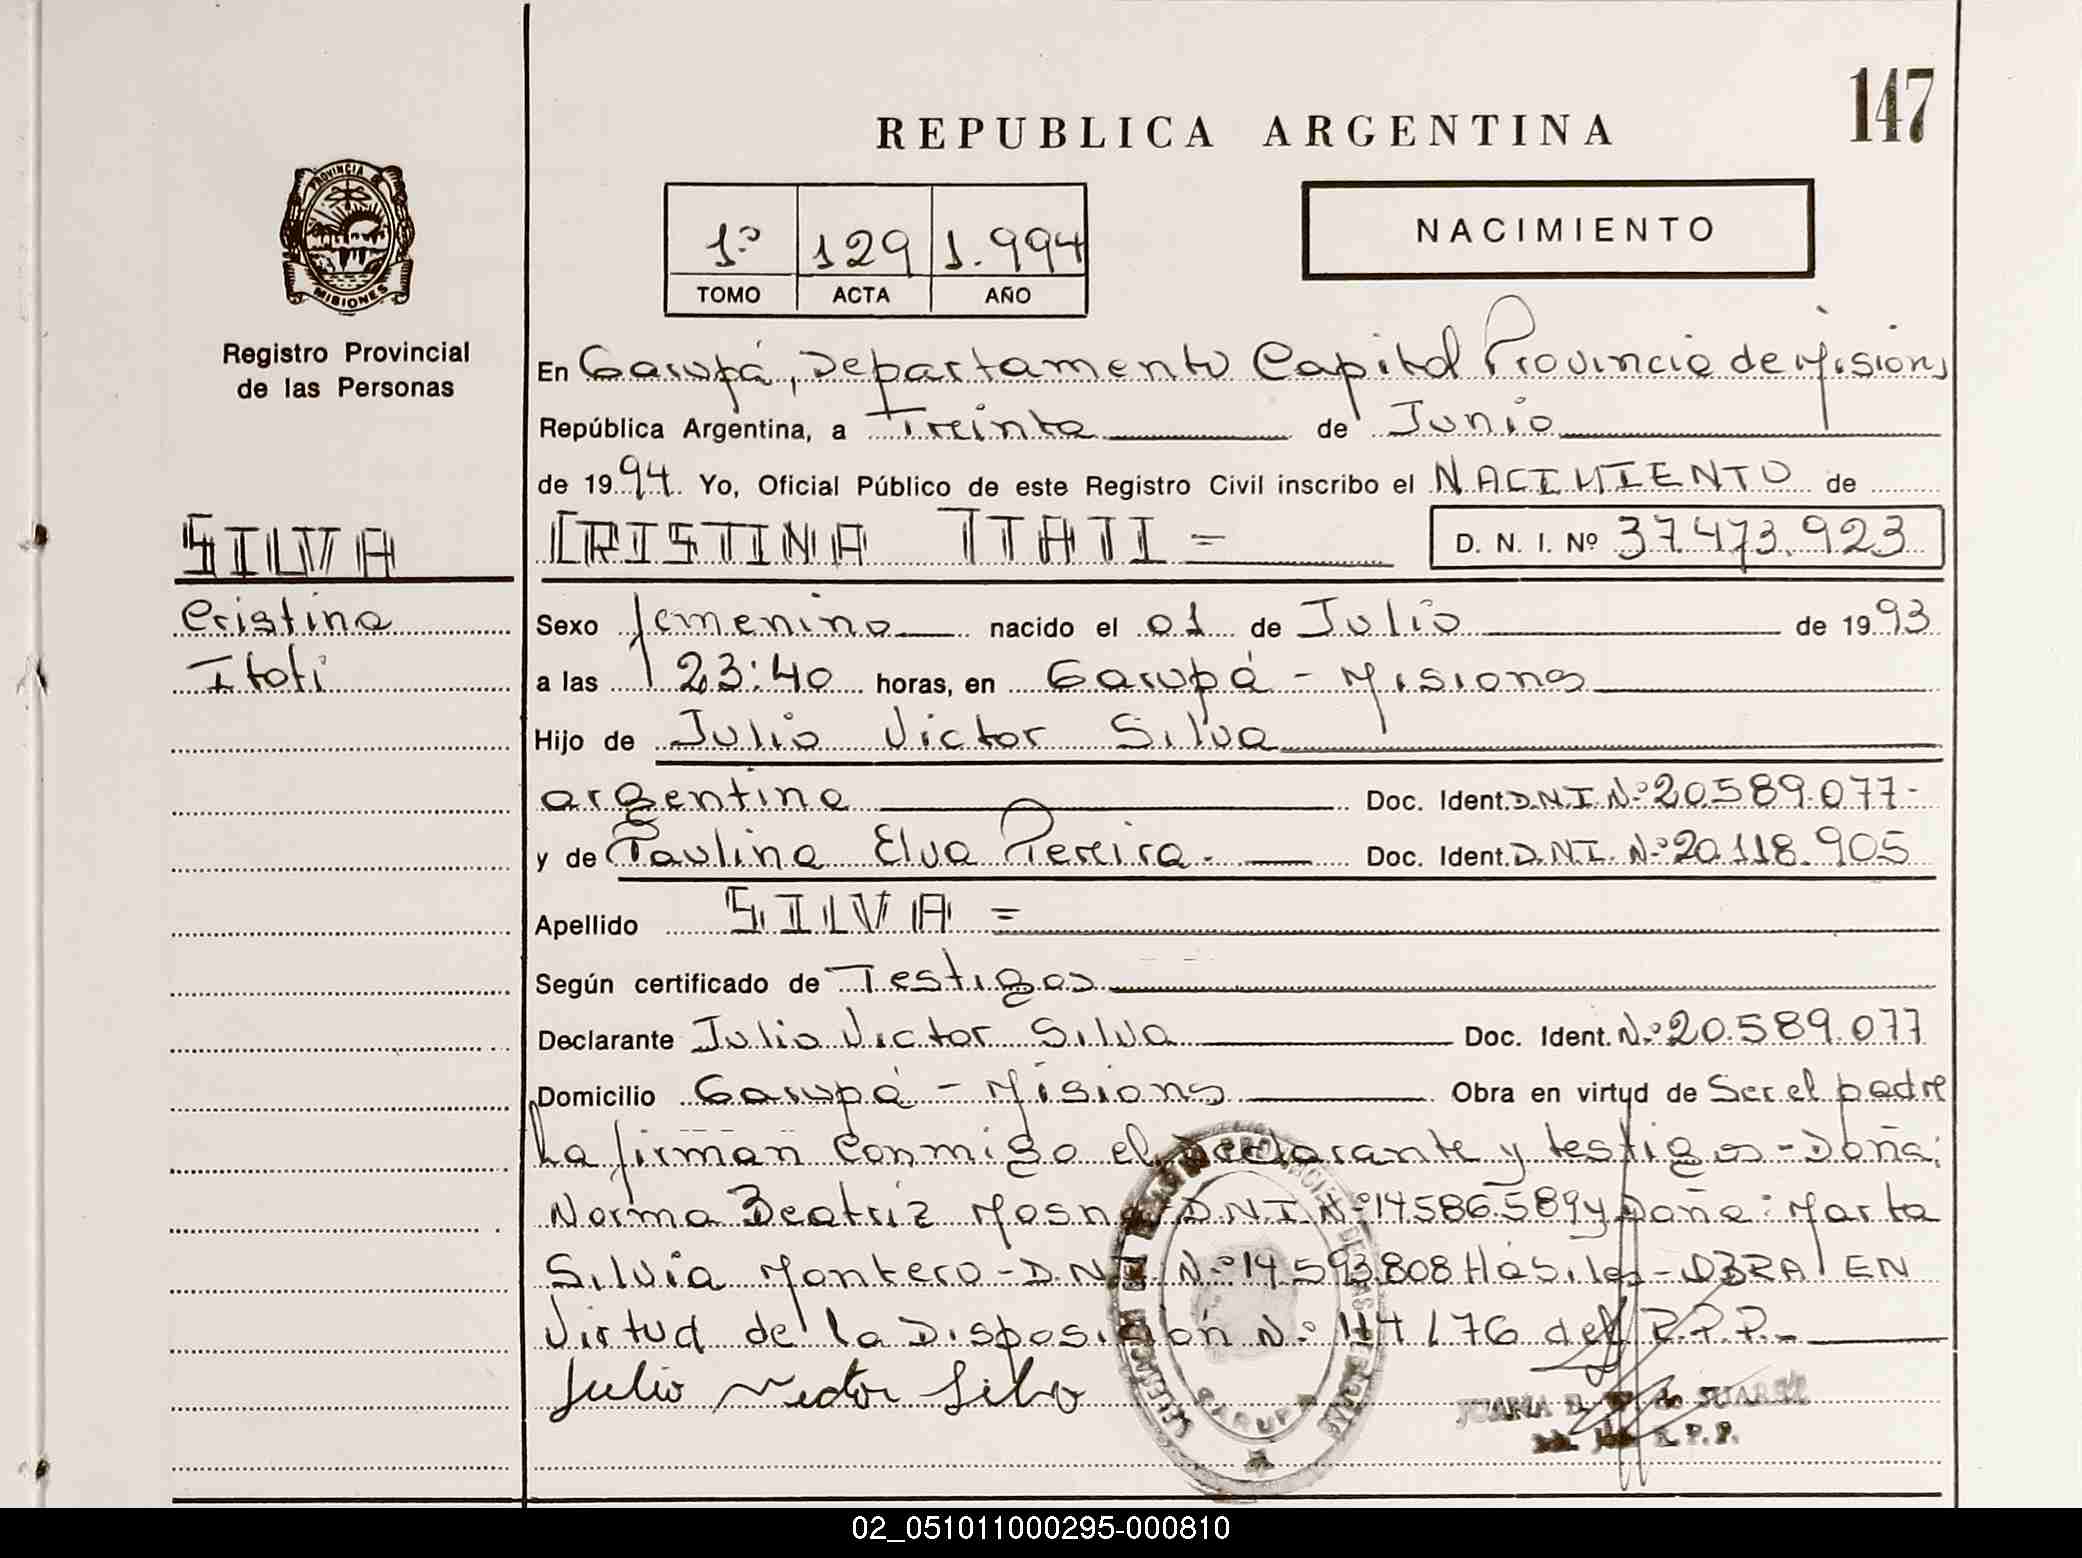 147
REPUBLICA ARGENTINA
PROVINCIA DE
MISIONES
1º 129 1.994
TOMO ACTA AÑO
NACIMIENTO
Registro Provincial
de las Personas
En Garupá, Departamento Capital Provincia de Misiones
República Argentina, a Treinta de Junio
de 1994. Yo, Oficial Público de este Registro Civil inscribo el NACIMIENTO de
SILVA
Cristina
Itati
CRISTINA ITATI = D. N. I. Nº 37.473.923
Sexo femenino nacido el 01 de Julio de 1993
a las 23:40 horas, en Garupá - Misiones
Hijo de Julio Victor Silva
argentino Doc. Ident. D.N.I. Nº 20.589.077-
y de Paulina Elva Pereira. Doc. Ident. D.N.I. Nº 20.118.905
Apellido SILVA =
Según certificado de Testigos
Declarante Julio Victor Silva Doc. Ident. Nº 20.589.077
Domicilio Garupá - Misiones Obra en virtud de Ser el padre
La firman conmigo el Declarante y testigos - Doña:
Norma Beatriz Mosna - D.N.I. Nº 14586.589 y Doña: Marta
Silvia Montero - D.N.I. Nº 14.593.808 Hábiles - OBRA EN
Virtud de la Disposición Nº 114/76 del R.P.P.-
Julio Victor Silva
GARUPA
JUANA de SUAREZ
R. P. P.
02_051011000295-000810